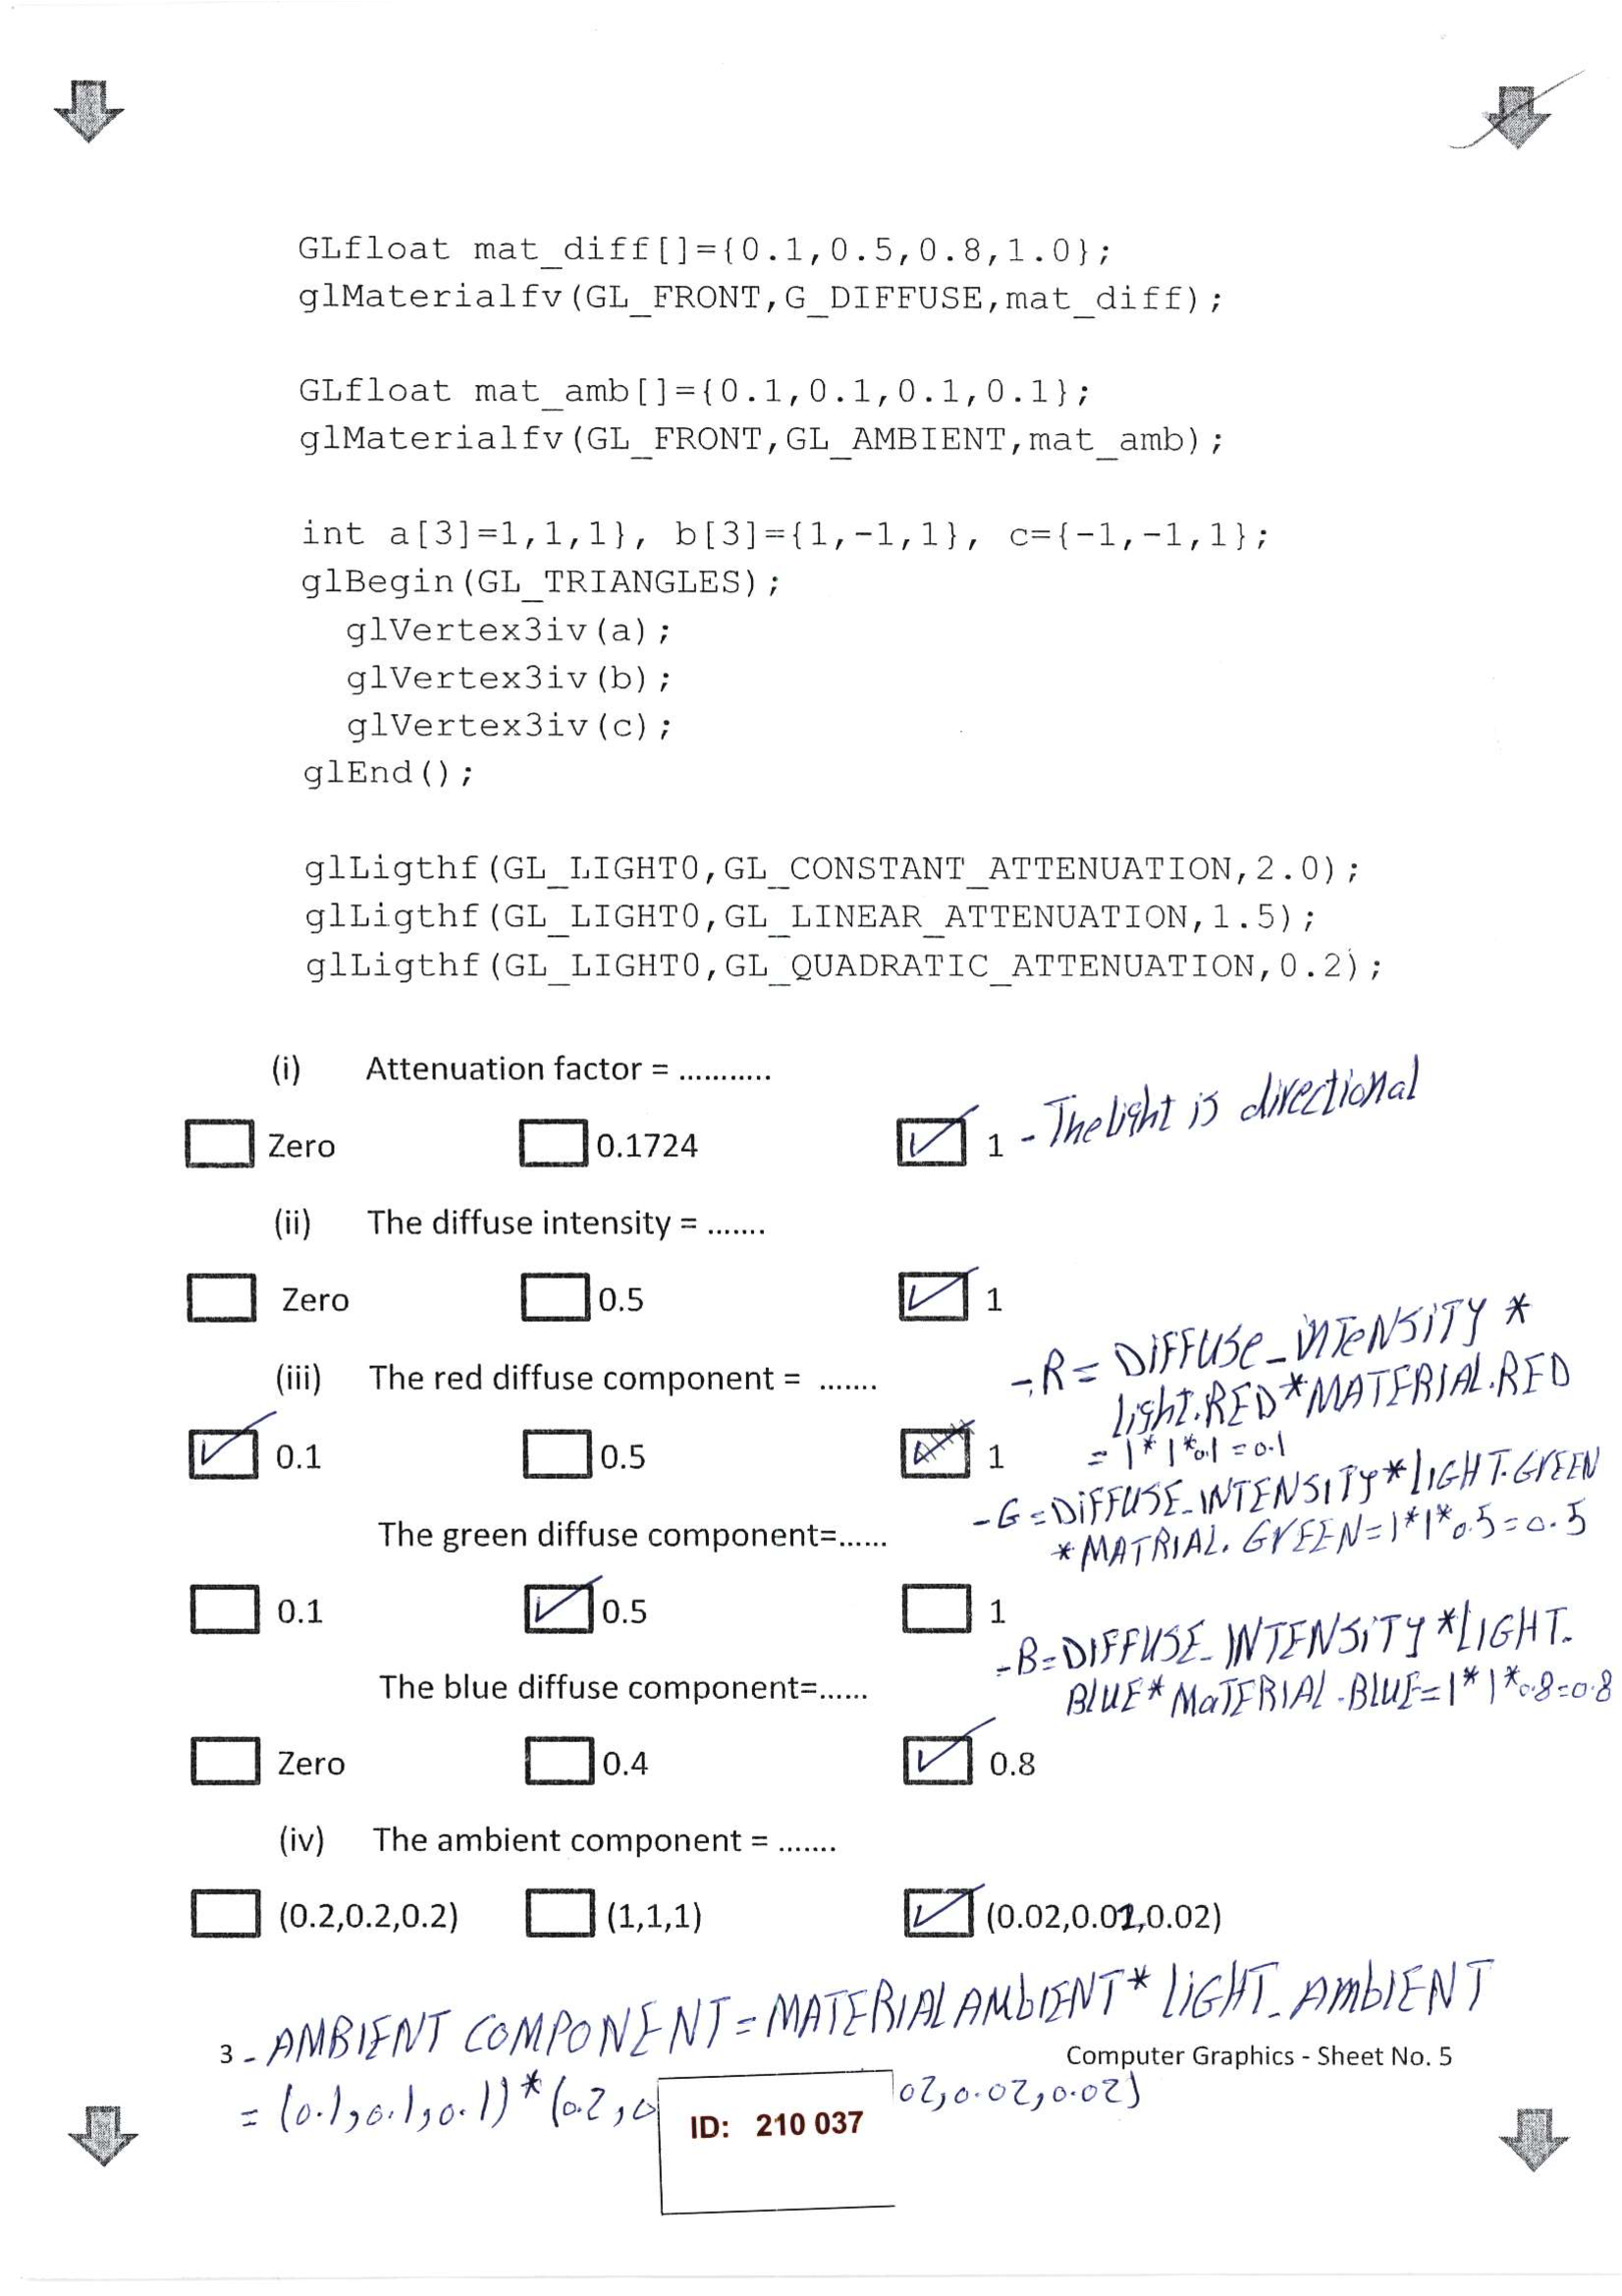 GLfloat mat_diff[]={0.1,0.5,0.8,1.0};
glMaterialfv(GL_FRONT,G_DIFFUSE,mat_diff);
GLfloat mat_amb[]={0.1,0.1,0.1,0.1};
glMaterialfv(GL_FRONT,GL_AMBIENT,mat_amb);
int a[3]=1,1,1}, b[3]={1,-1,1}, c={-1,-1,1};
glBegin(GL_TRIANGLES);
glVertex3iv(a);
glVertex3iv(b);
glVertex3iv(c);
glEnd();
glLigthf(GL_LIGHT0,GL_CONSTANT_ATTENUATION,2.0);
glLigthf(GL_LIGHT0,GL_LINEAR_ATTENUATION,1.5);
glLigthf(GL_LIGHT0,GL_QUADRATIC_ATTENUATION,0.2);
(i) Attenuation factor = ...........
Zero 0.1724 1 - The light is directional
(ii) The diffuse intensity = .......
Zero 0.5 1
(iii) The red diffuse component = .......
- R = DIFFUSE_INTENSITY *
light.RED*MATERIAL.RED
= 1*1*0.1 = 0.1
0.1 0.5 1
- G = DIFFUSE_INTENSITY*LIGHT.GREEN
*MATRIAL. GREEN=1*1*0.5=0.5
The green diffuse component=......
0.1 0.5 1
- B=DIFFUSE_INTENSITY*LIGHT.
BLUE*MATERIAL.BLUE=1*1*0.8=0.8
The blue diffuse component=......
Zero 0.4 0.8
(iv) The ambient component = .......
(0.2,0.2,0.2) (1,1,1) (0.02,0.02,0.02)
- AMBIENT COMPONENT=MATERIAL AMBIENT* LIGHT_AMBIENT
3 Computer Graphics - Sheet No. 5
= (0.1,0.1,0.1)*(0.2,0 02,0.02,0.02)
ID: 210 037